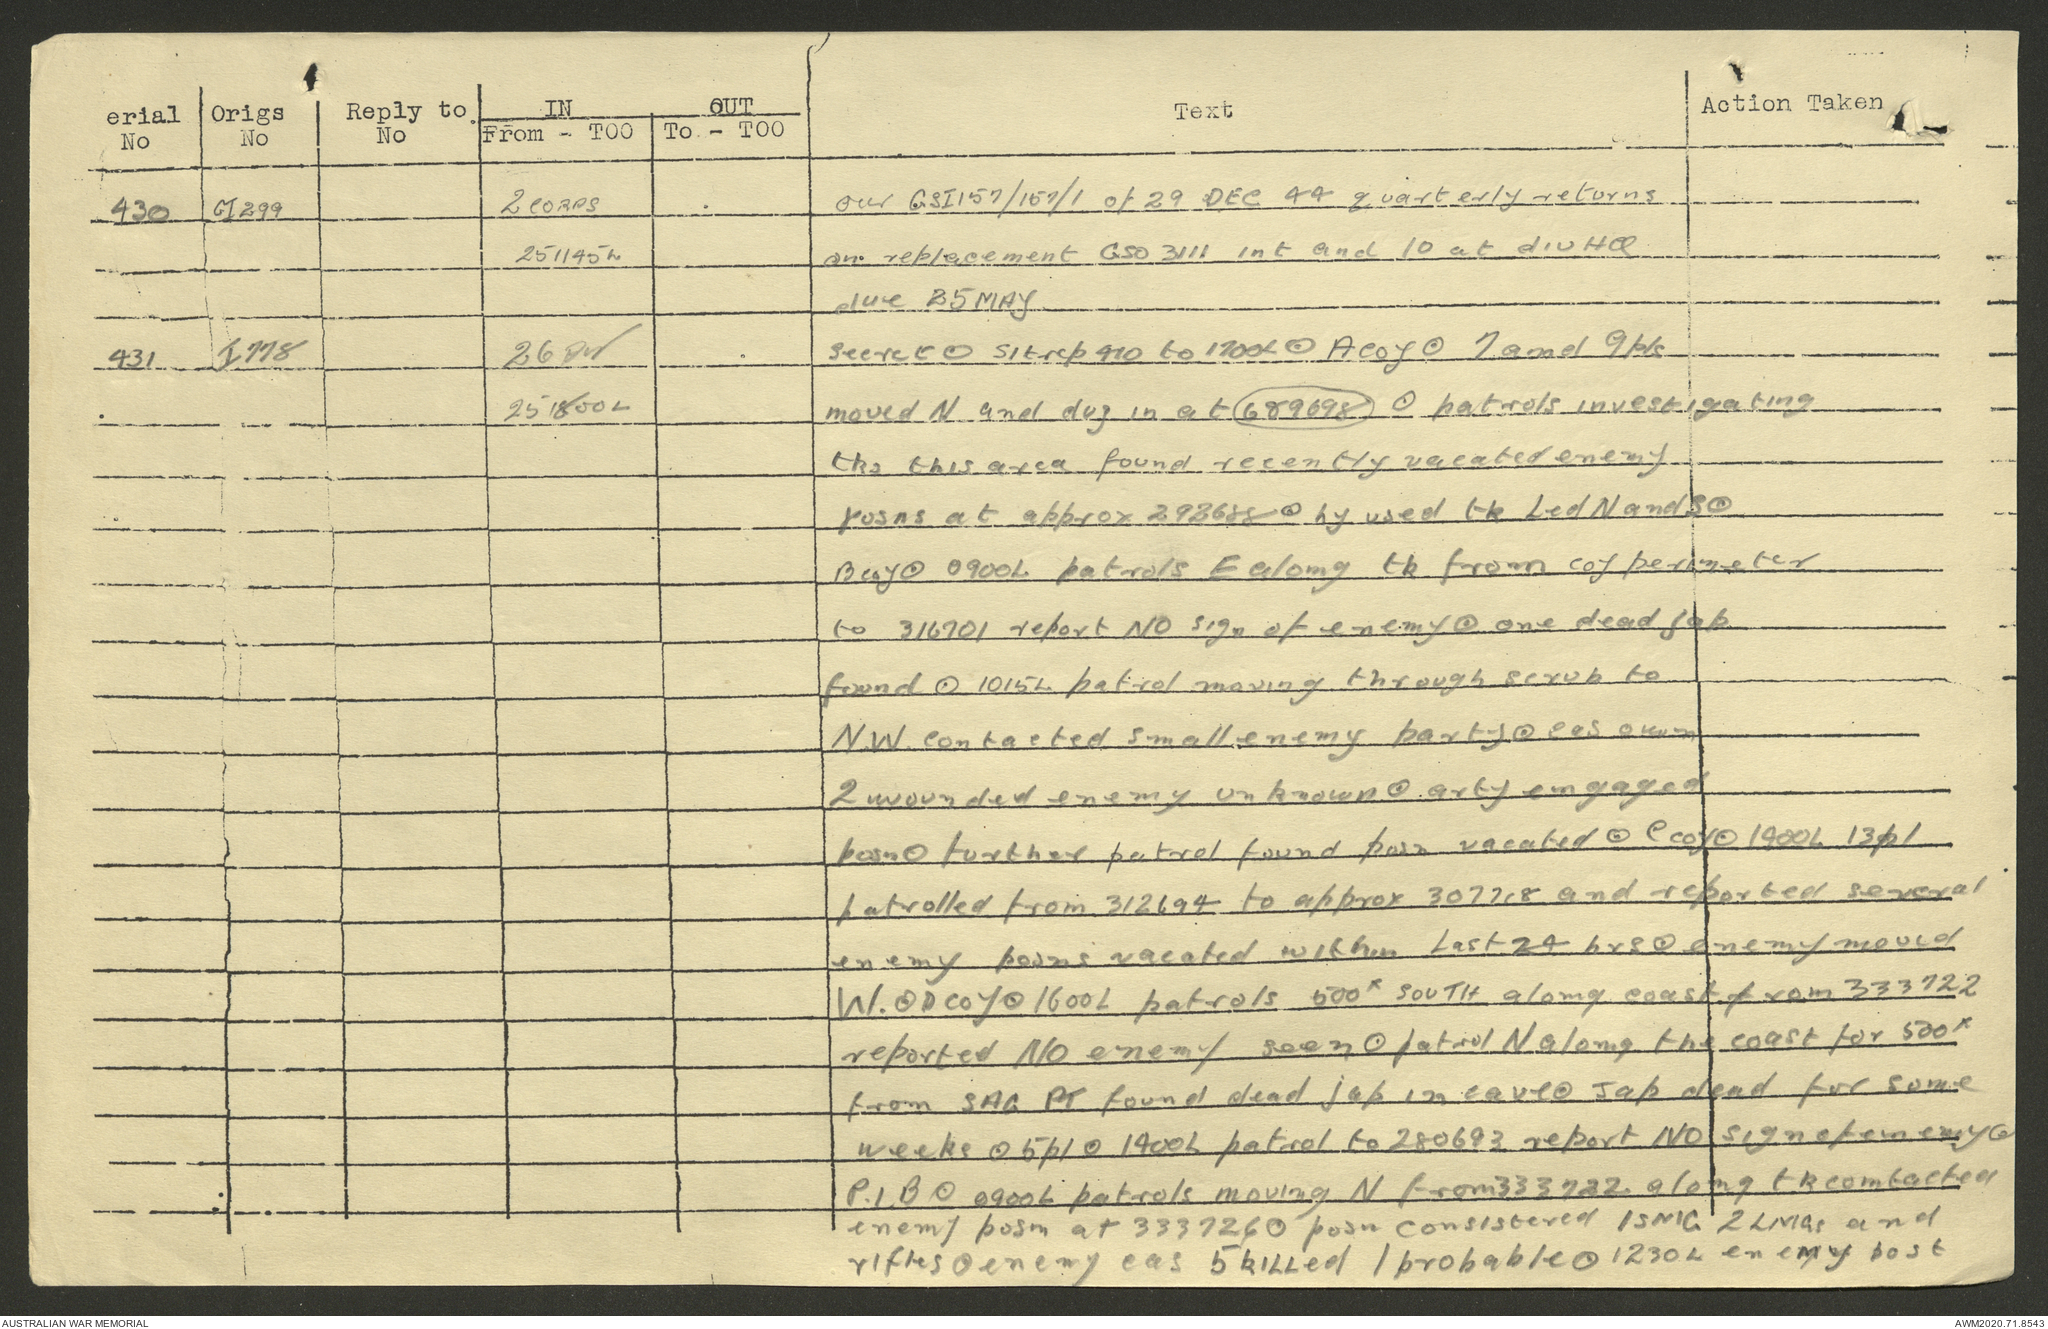 erial No
Origs No
Reply to No
IN
From - TOO
OUT
To - TOO
Text
Action Taken
430 GI299 2 CORPS our GSI157/157/1 of 29 DEC 44 quarterly returns
251145L on replacement GSO 3111 int and 10 at div HQ
due 25 MAY
431 I778 26 secret ⊙ sitrep 410 to 1700L ⊙ A coy ⊙ 7 and 9 pls
251800L moved N and dug in at 689698 ⊙ patrols investigating
tks this area found recently vacated enemy
posns at approx 292688 ⊙ hy used tk Led N and S ⊙
B coy ⊙ 0900L patrols E along tk from coy perimeter
to 316701 report NO sign of enemy ⊙ one dead jap
found ⊙ 1015L patrol moving through scrub to
N.W. contacted small enemy party ⊙ cas own
2 wounded enemy unknown ⊙ arty engaged
posn ⊙ further patrol found posn vacated ⊙ C coy ⊙ 1400L 13 pl
patrolled from 312694 to approx 307718 and reported several
enemy posns vacated within Last 24 hrs ⊙ enemy moved
W. ⊙ D coy ⊙ 1600L patrols 500ˣ SOUTH along coast from 333722
reported NO enemy seen ⊙ patrol N along the coast for 500ˣ
from SAG PT found dead jap in cave ⊙ Jap dead for some
weeks ⊙ 5 pl ⊙ 1400L patrol to 280693 report NO sign of enemy ⊙
P.I.B ⊙ 0900L patrols moving N from 333722 along tk contacted
enemy posn at 333726 ⊙ posn consistered 1 SMG 2 LMGs and
rifles ⊙ enemy cas 5 killed 1 probable ⊙ 1230L enemy post
AUSTRALIAN WAR MEMORIAL
AWM2020.71.8543